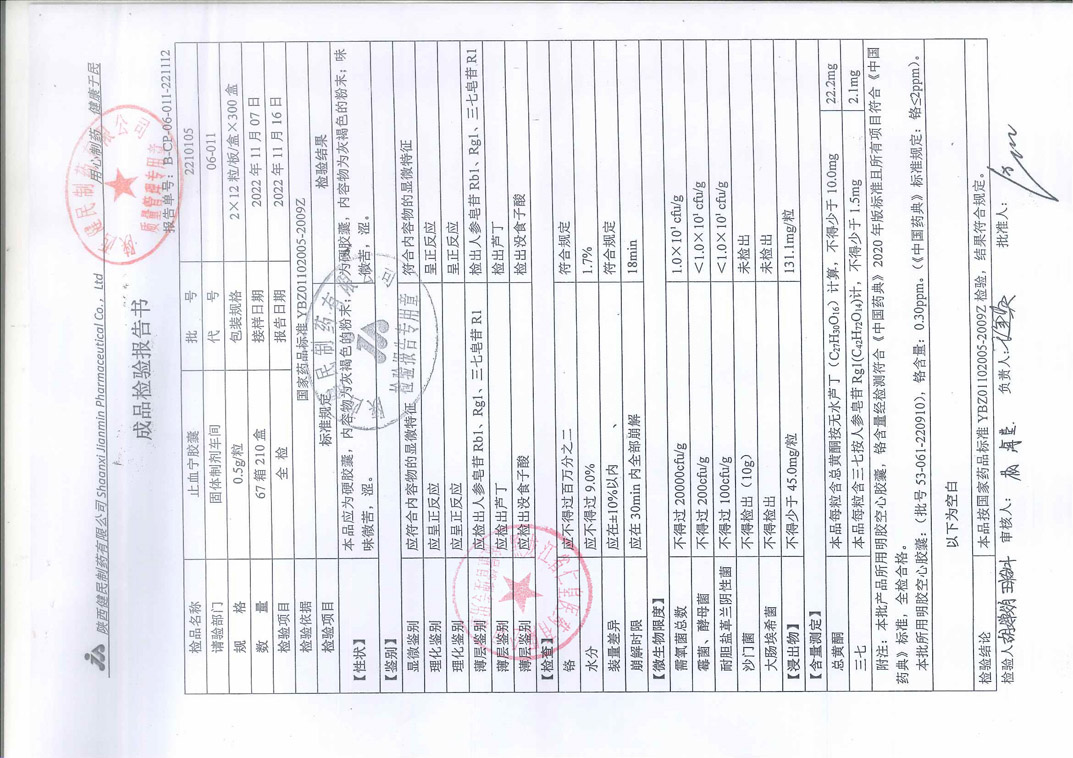 陕西健民制药有限公司 Shaanxi Jianmin Pharmaceutical Co., Ltd 用心制药 健康于民
成品检验报告书
报告单号: B-CP-06-011-221112
检品名称 止血宁胶囊 批 号 2210105
请验部门 固体制剂车间 代 号 06-011
规 格 0.5g/粒 包装规格 2×12 粒/板/盒×300 盒
数 量 67 箱 210 盒 接样日期 2022 年 11 月 07 日
检验项目 全 检 报告日期 2022 年 11 月 16 日
检验依据 国家药品标准 YBZ01102005-2009Z
检验项目 标准规定 检验结果
【性状】 本品应为硬胶囊,内容物为灰褐色的粉末;味微苦,涩。 为硬胶囊,内容物为灰褐色的粉末;味微苦,涩。
【鉴别】
显微鉴别 应符合内容物的显微特征 符合内容物的显微特征
理化鉴别 应呈正反应 呈正反应
理化鉴别 应呈正反应 呈正反应
薄层鉴别 应检出人参皂苷 Rb1、Rg1、三七皂苷 R1 检出人参皂苷 Rb1、Rg1、三七皂苷 R1
薄层鉴别 应检出芦丁 检出芦丁
薄层鉴别 应检出没食子酸 检出没食子酸
【检查】
铬 应不得过百万分之二 符合规定
水分 应不得过 9.0% 1.7%
装量差异 应在±10%以内 符合规定
崩解时限 应在 30min 内全部崩解 18min
【微生物限度】
需氧菌总数 不得过 20000cfu/g 1.0×10¹ cfu/g
霉菌、酵母菌 不得过 200cfu/g <1.0×10¹ cfu/g
耐胆盐革兰阴性菌 不得过 100cfu/g <1.0×10¹ cfu/g
沙门菌 不得检出(10g) 未检出
大肠埃希菌 不得检出 未检出
【浸出物】 不得少于 45.0mg/粒 131.1mg/粒
【含量测定】
总黄酮 本品每粒含总黄酮按无水芦丁(C₂₇H₃₀O₁₆)计算,不得少于 10.0mg 22.2mg
三七 本品每粒含三七按人参皂苷 Rg1(C₄₂H₇₂O₁₄)计,不得少于 1.5mg 2.1mg
附注:本批产品所用明胶空心胶囊,铬含量经检测符合《中国药典》2020 年版标准且所有项目符合《中国
药典》标准,全检合格。
本批所用明胶空心胶囊:(批号 S3-061-220910),铬含量:0.30ppm。(《中国药典》标准规定:铬≤2ppm)。
以下为空白
检验结论 本品按国家药品标准 YBZ01102005-2009Z 检验,结果符合规定。
检验人: 审核人: 负责人: 批准人:
质量管理专用章
检验报告专用章